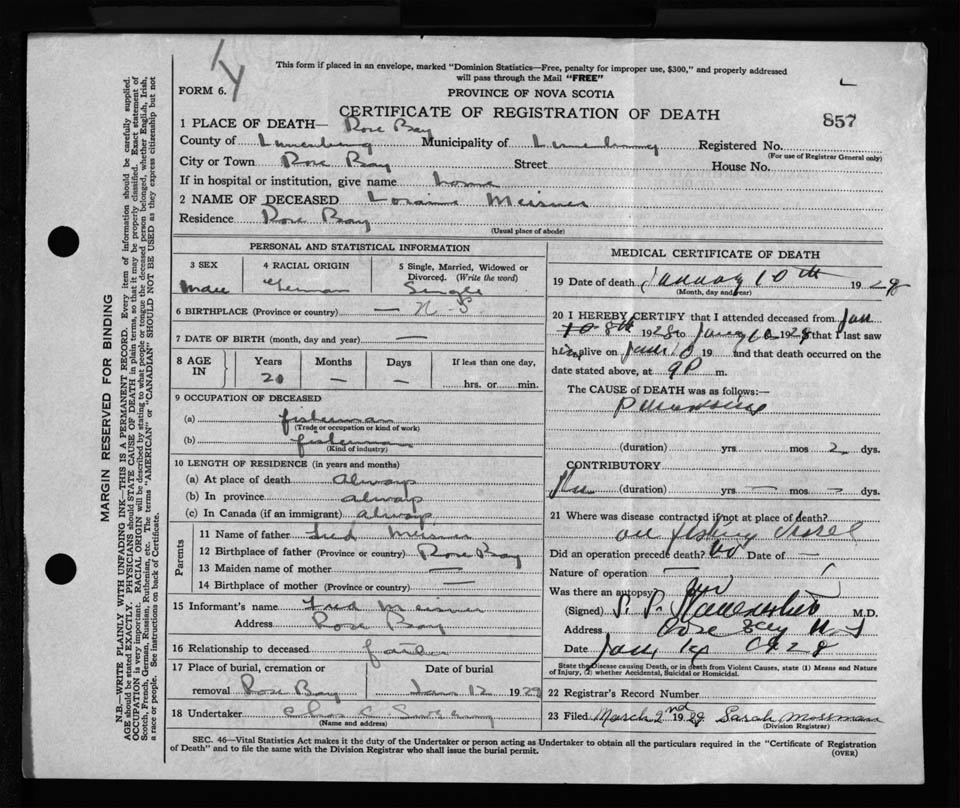 This form if placed in an envelope, marked "Dominion Statistics—Free, penalty for improper use, $300," and properly addressed
will pass through the Mail "FREE"
FORM 6.
PROVINCE OF NOVA SCOTIA
CERTIFICATE OF REGISTRATION OF DEATH
857
1 PLACE OF DEATH— Rose Bay
County of Lunenburg Municipality of Lunenburg Registered No.
(For use of Registrar General only)
City or Town Rose Bay Street House No.
If in hospital or institution, give name home
2 NAME OF DECEASED Meisner
Residence Rose Bay
(Usual place of abode)
PERSONAL AND STATISTICAL INFORMATION
3 SEX 4 RACIAL ORIGIN 5 Single, Married, Widowed or
Divorced. (Write the word)
Male German Single
6 BIRTHPLACE (Province or country) — N-S
7 DATE OF BIRTH (month, day and year) —
8 AGE IN Years Months Days If less than one day,
20 — — hrs. or min.
9 OCCUPATION OF DECEASED
(a) fisherman
(Trade or occupation or kind of work)
(b) fisherman
(Kind of industry)
10 LENGTH OF RESIDENCE (in years and months)
(a) At place of death Always
(b) In province always
(c) In Canada (if an immigrant) always
Parents
11 Name of father Fred Meisner
12 Birthplace of father (Province or country) Rose Bay
13 Maiden name of mother —
14 Birthplace of mother (Province or country) —
15 Informant's name Fred Meisner
Address Rose Bay
16 Relationship to deceased father
17 Place of burial, cremation or Date of burial
removal Rose Bay Jan 12 1929
18 Undertaker Chas C.
(Name and address)
MEDICAL CERTIFICATE OF DEATH
19 Date of death January 10th 1928
(Month, day and year)
20 I HEREBY CERTIFY that I attended deceased from Jan
8th 1928 to Jany 10 1928 that I last saw
him alive on Jan 10 19 and that death occurred on the
date stated above, at 9P m.
The CAUSE of DEATH was as follows:—
(duration) yrs. mos 2 dys.
CONTRIBUTORY
Flu (duration) yrs — mos — dys.
21 Where was disease contracted if not at place of death?
on fishing vessel
Did an operation precede death? No Date of —
Nature of operation —
Was there an autopsy?
(Signed) M.D.
Address Rose Bay N S
Date
State the Disease causing Death, or in death from Violent Causes, state (1) Means and Nature
of Injury, (2) whether Accidental, Suicidal or Homicidal.
22 Registrar's Record Number
23 Filed March 2nd 1929 Sarah Mossman
(Division Registrar)
SEC. 46—Vital Statistics Act makes it the duty of the Undertaker or person acting as Undertaker to obtain all the particulars required in the "Certificate of Registration
of Death" and to file the same with the Division Registrar who shall issue the burial permit.
(OVER)
MARGIN RESERVED FOR BINDING
N.B.—WRITE PLAINLY WITH UNFADING INK—THIS IS A PERMANENT RECORD. Every item of information should be carefully supplied.
AGE should be stated EXACTLY. PHYSICIANS should STATE CAUSE OF DEATH in plain terms, so that it may be properly classified. Exact statement of
OCCUPATION is very important. RACIAL ORIGIN will be described by stating to what people or tongue the deceased person belonged, whether English, Irish,
Scotch, French, German, Russian, Ruthenian, etc. The terms "AMERICAN" or "CANADIAN" SHOULD NOT BE USED as they express citizenship but not
a race or people. See instructions on back of Certificate.